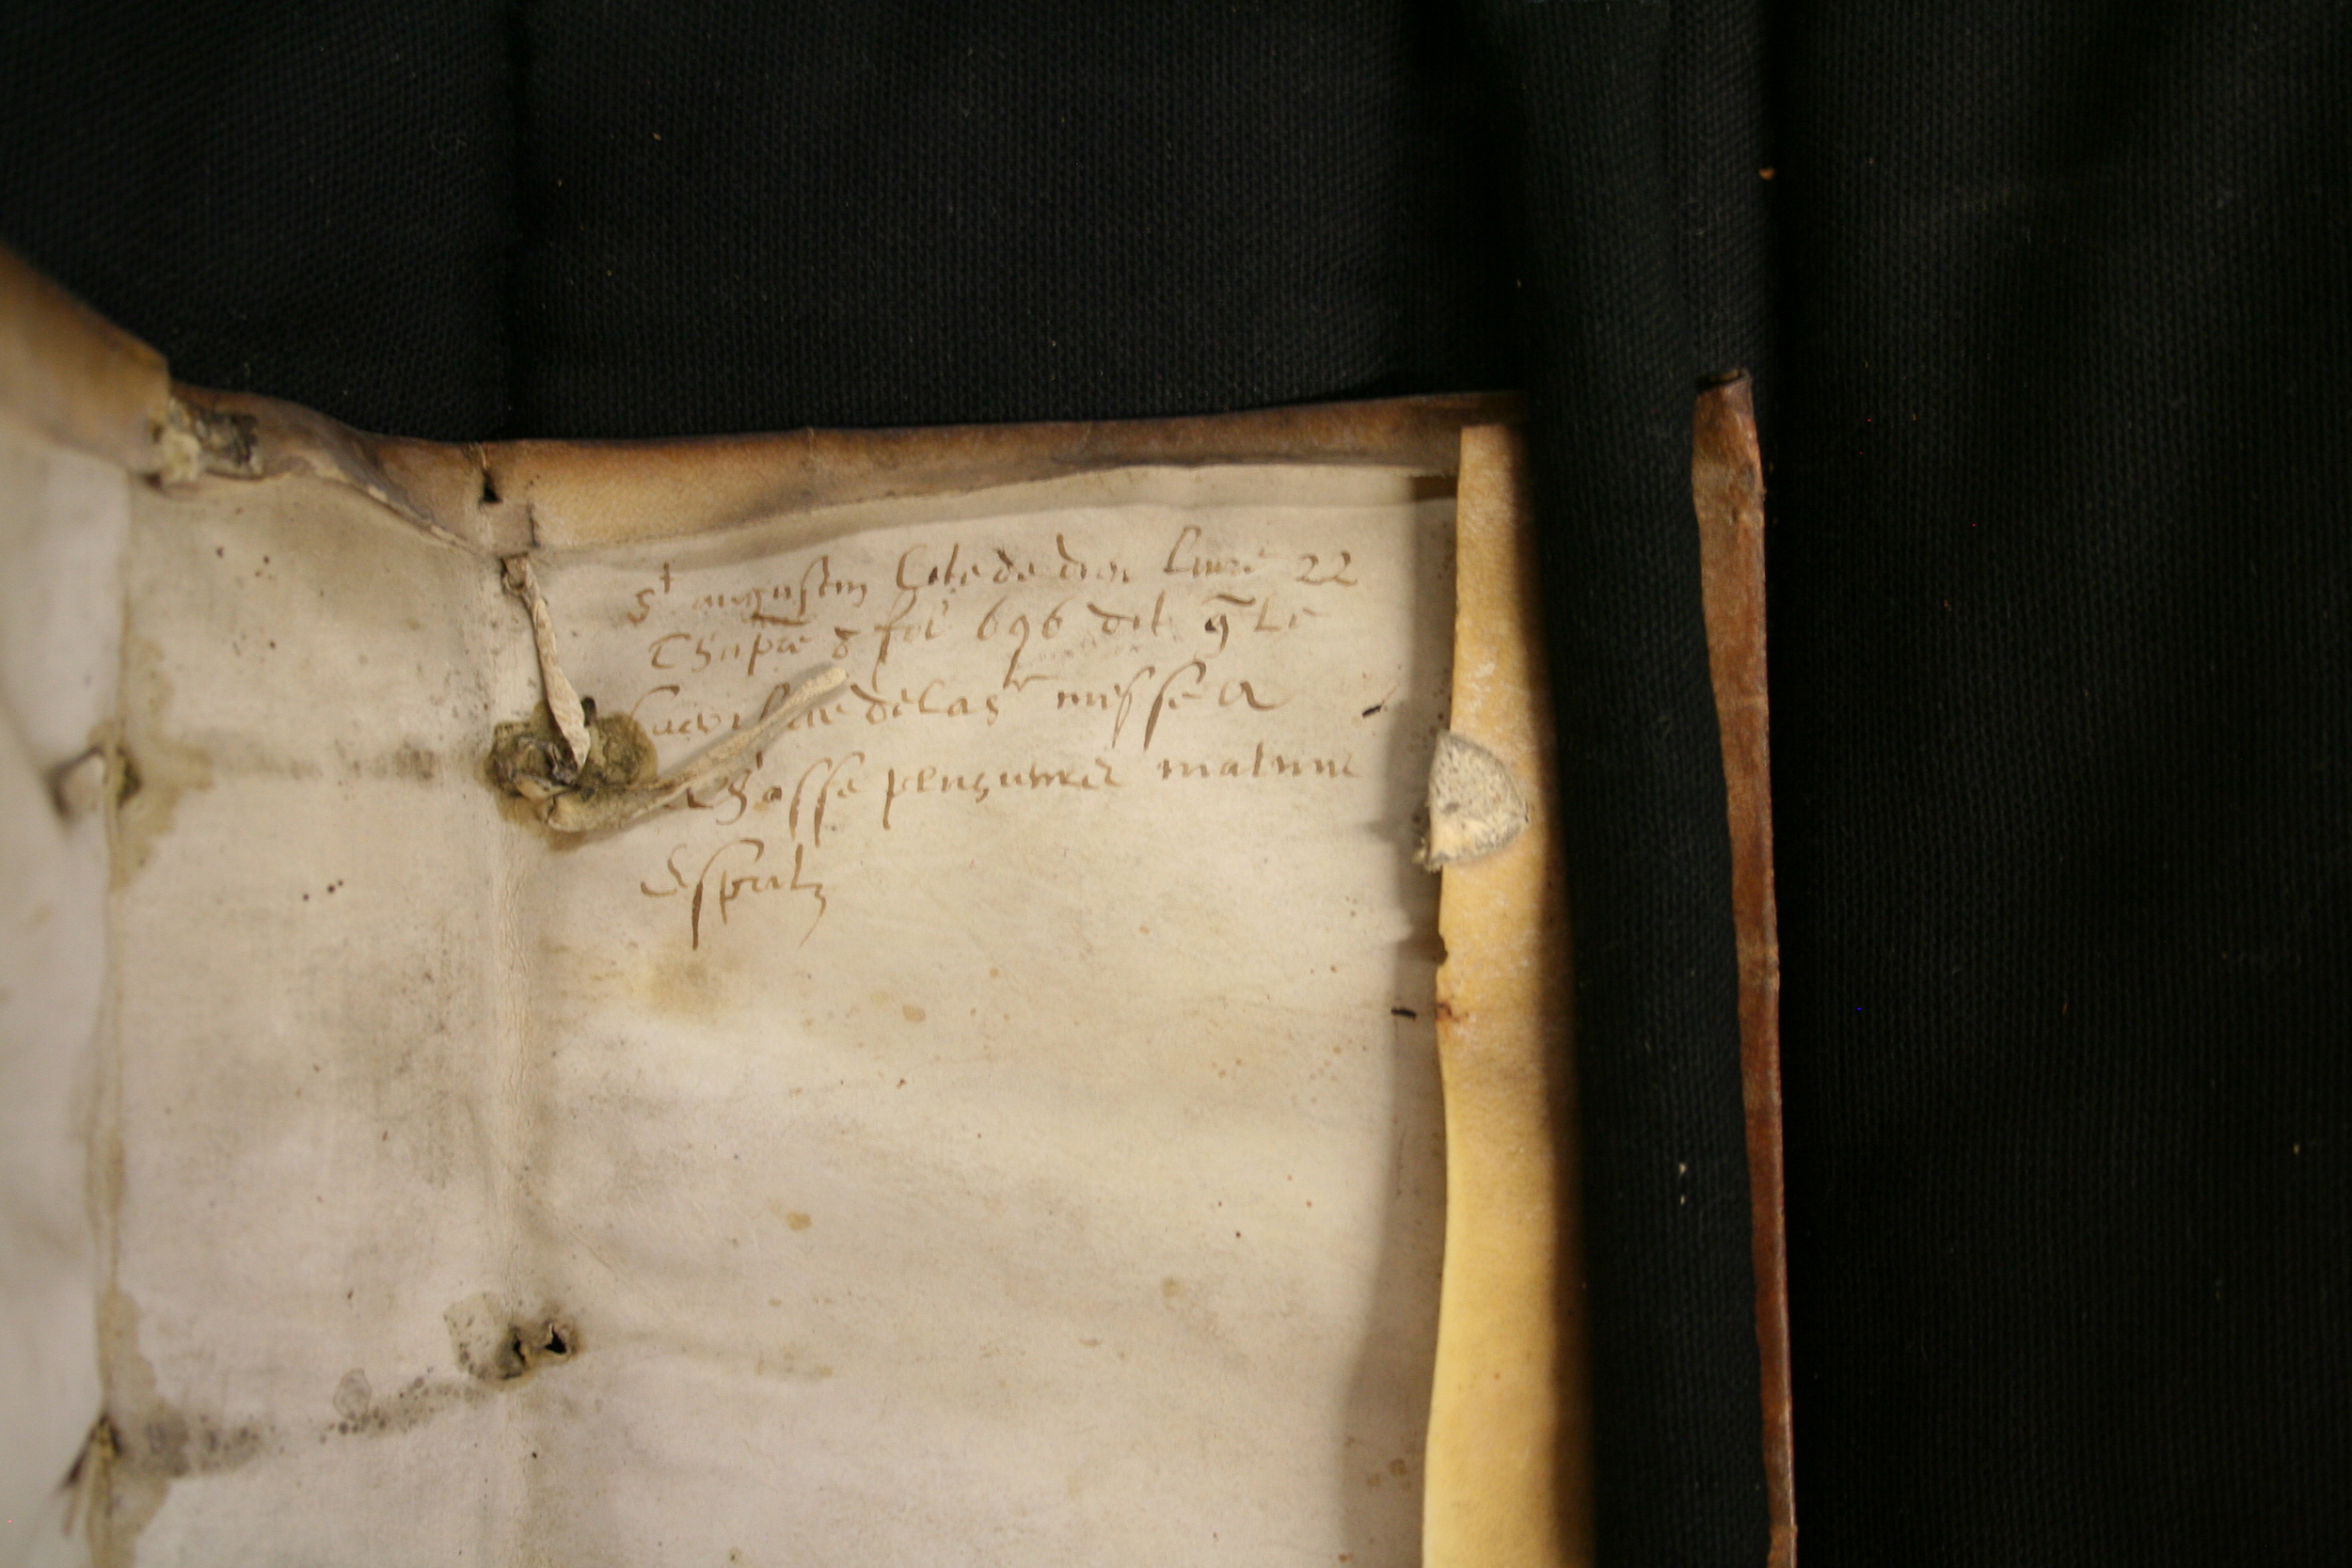 St augustin Cite de dieu Livre 22
Chapre 8 fol 696 dit q̄ Le
sacrifice de la Ste messe a
Chasse plusieurs malins
Espritz